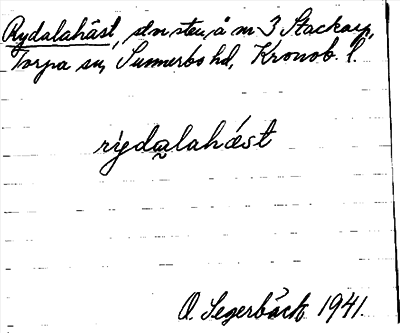 Rydalahäst, stor sten, å m 3 Stackarp,
Torpa sn, Sunnerbo hd, Kronob. l.
rydalahæst
O. Segerbäck 1941.